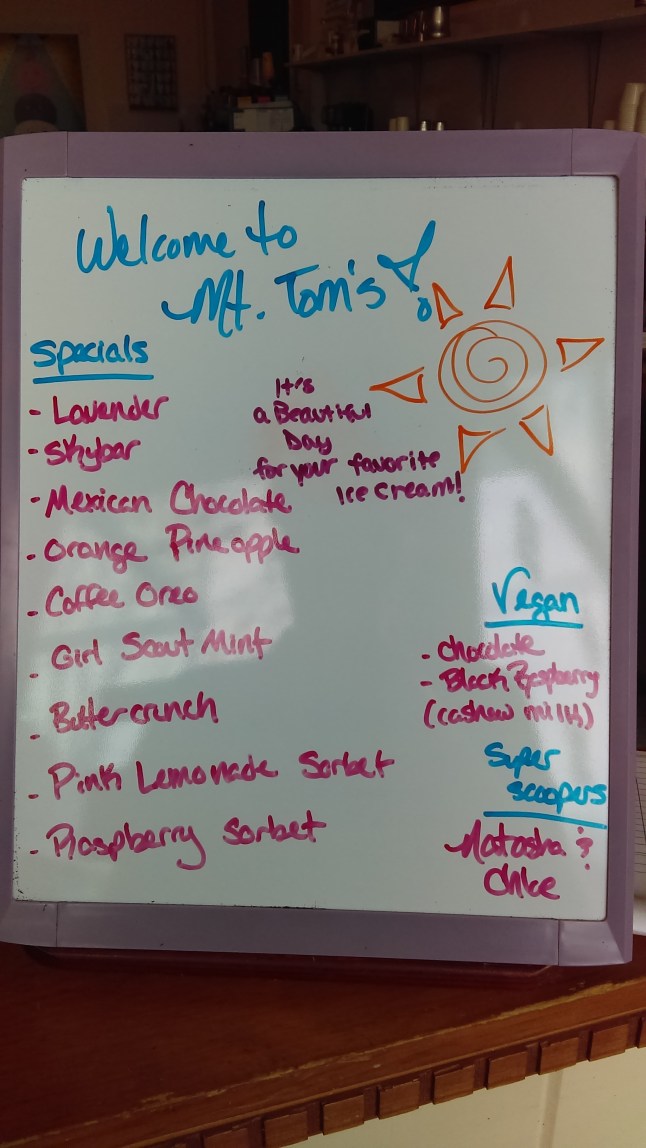 Welcome to
Mt. Tom's!
Specials
- Lavender
- Skybar
- Mexican Chocolate
- Orange Pineapple
- Coffee Oreo
- Girl Scout Mint
- Buttercrunch
- Pink Lemonade Sorbet
- Raspberry Sorbet
It's
a Beautiful
Day
for your favorite
Ice cream!
Vegan
- Chocolate
- Black Raspberry
(cashew milk)
Super
scoopers
Natasha &